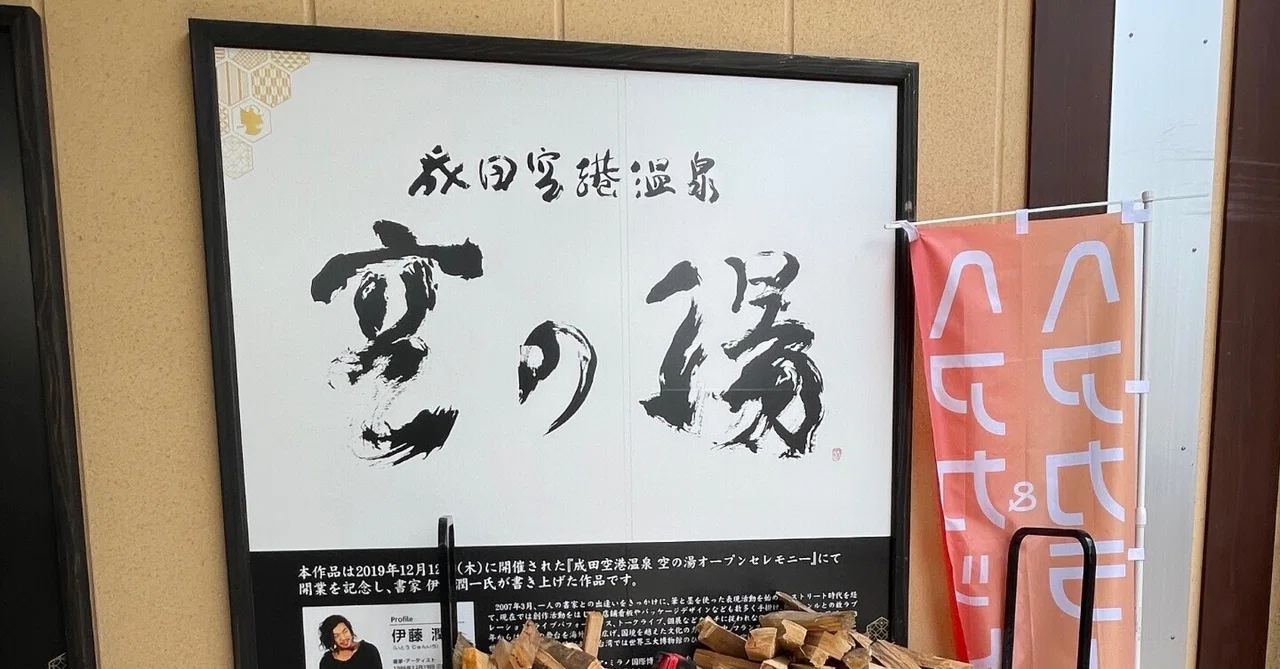 成田空港温泉
空の湯
本作品は2019年12月12 (木)に開催された『成田空港温泉 空の湯オープンセレモニー』にて
開業を記念し、書家 伊 潤一氏が書き上げた作品です。
2007年3月、一人の書家との出逢いをきっかけに、筆と墨を使った表現活動を始め ストリート時代を経
て、現在では創作活動をはじ 店舗看板やパッケージデザインなども数多く手掛け
レーション イブパフォーマ ス、トークライブ、個展など チに捉われな
年から 舞台を海外 広げ、国境を越えた文化の
台湾では世界三大博物館の
ミラノ国際博
Profile
伊藤 潤
(いとう じゅんいち)
書家・アーティスト
ヘアカット
&
ヘアカラー